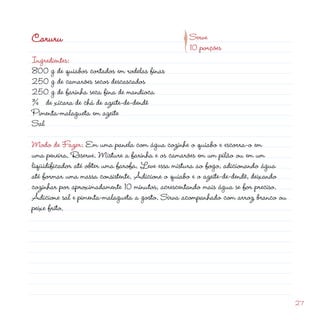 Caruru
Serve
10 porções
Ingredientes:
800 g de quiabos cortados em rodelas finas
250 g de camarões secos descascados
250 g de farinha seca fina de mandioca
¾ de xícara de chá de azeite-de-dendê
Pimenta-malagueta em azeite
Sal
Modo de Fazer: Em uma panela com água cozinhe o quiabo e escorra-o em
uma peneira. Reserve. Misture a farinha e os camarões em um pilão ou em um
liquidificador até obter uma farofa. Leve essa mistura ao fogo, adicionando água
até formar uma massa consistente. Adicione o quiabo e o azeite-de-dendê, deixando
cozinhar por aproximadamente 10 minutos, acrescentando mais água se for preciso.
Adicione sal e pimenta-malagueta a gosto. Sirva acompanhado com arroz branco ou
peixe frito.
27